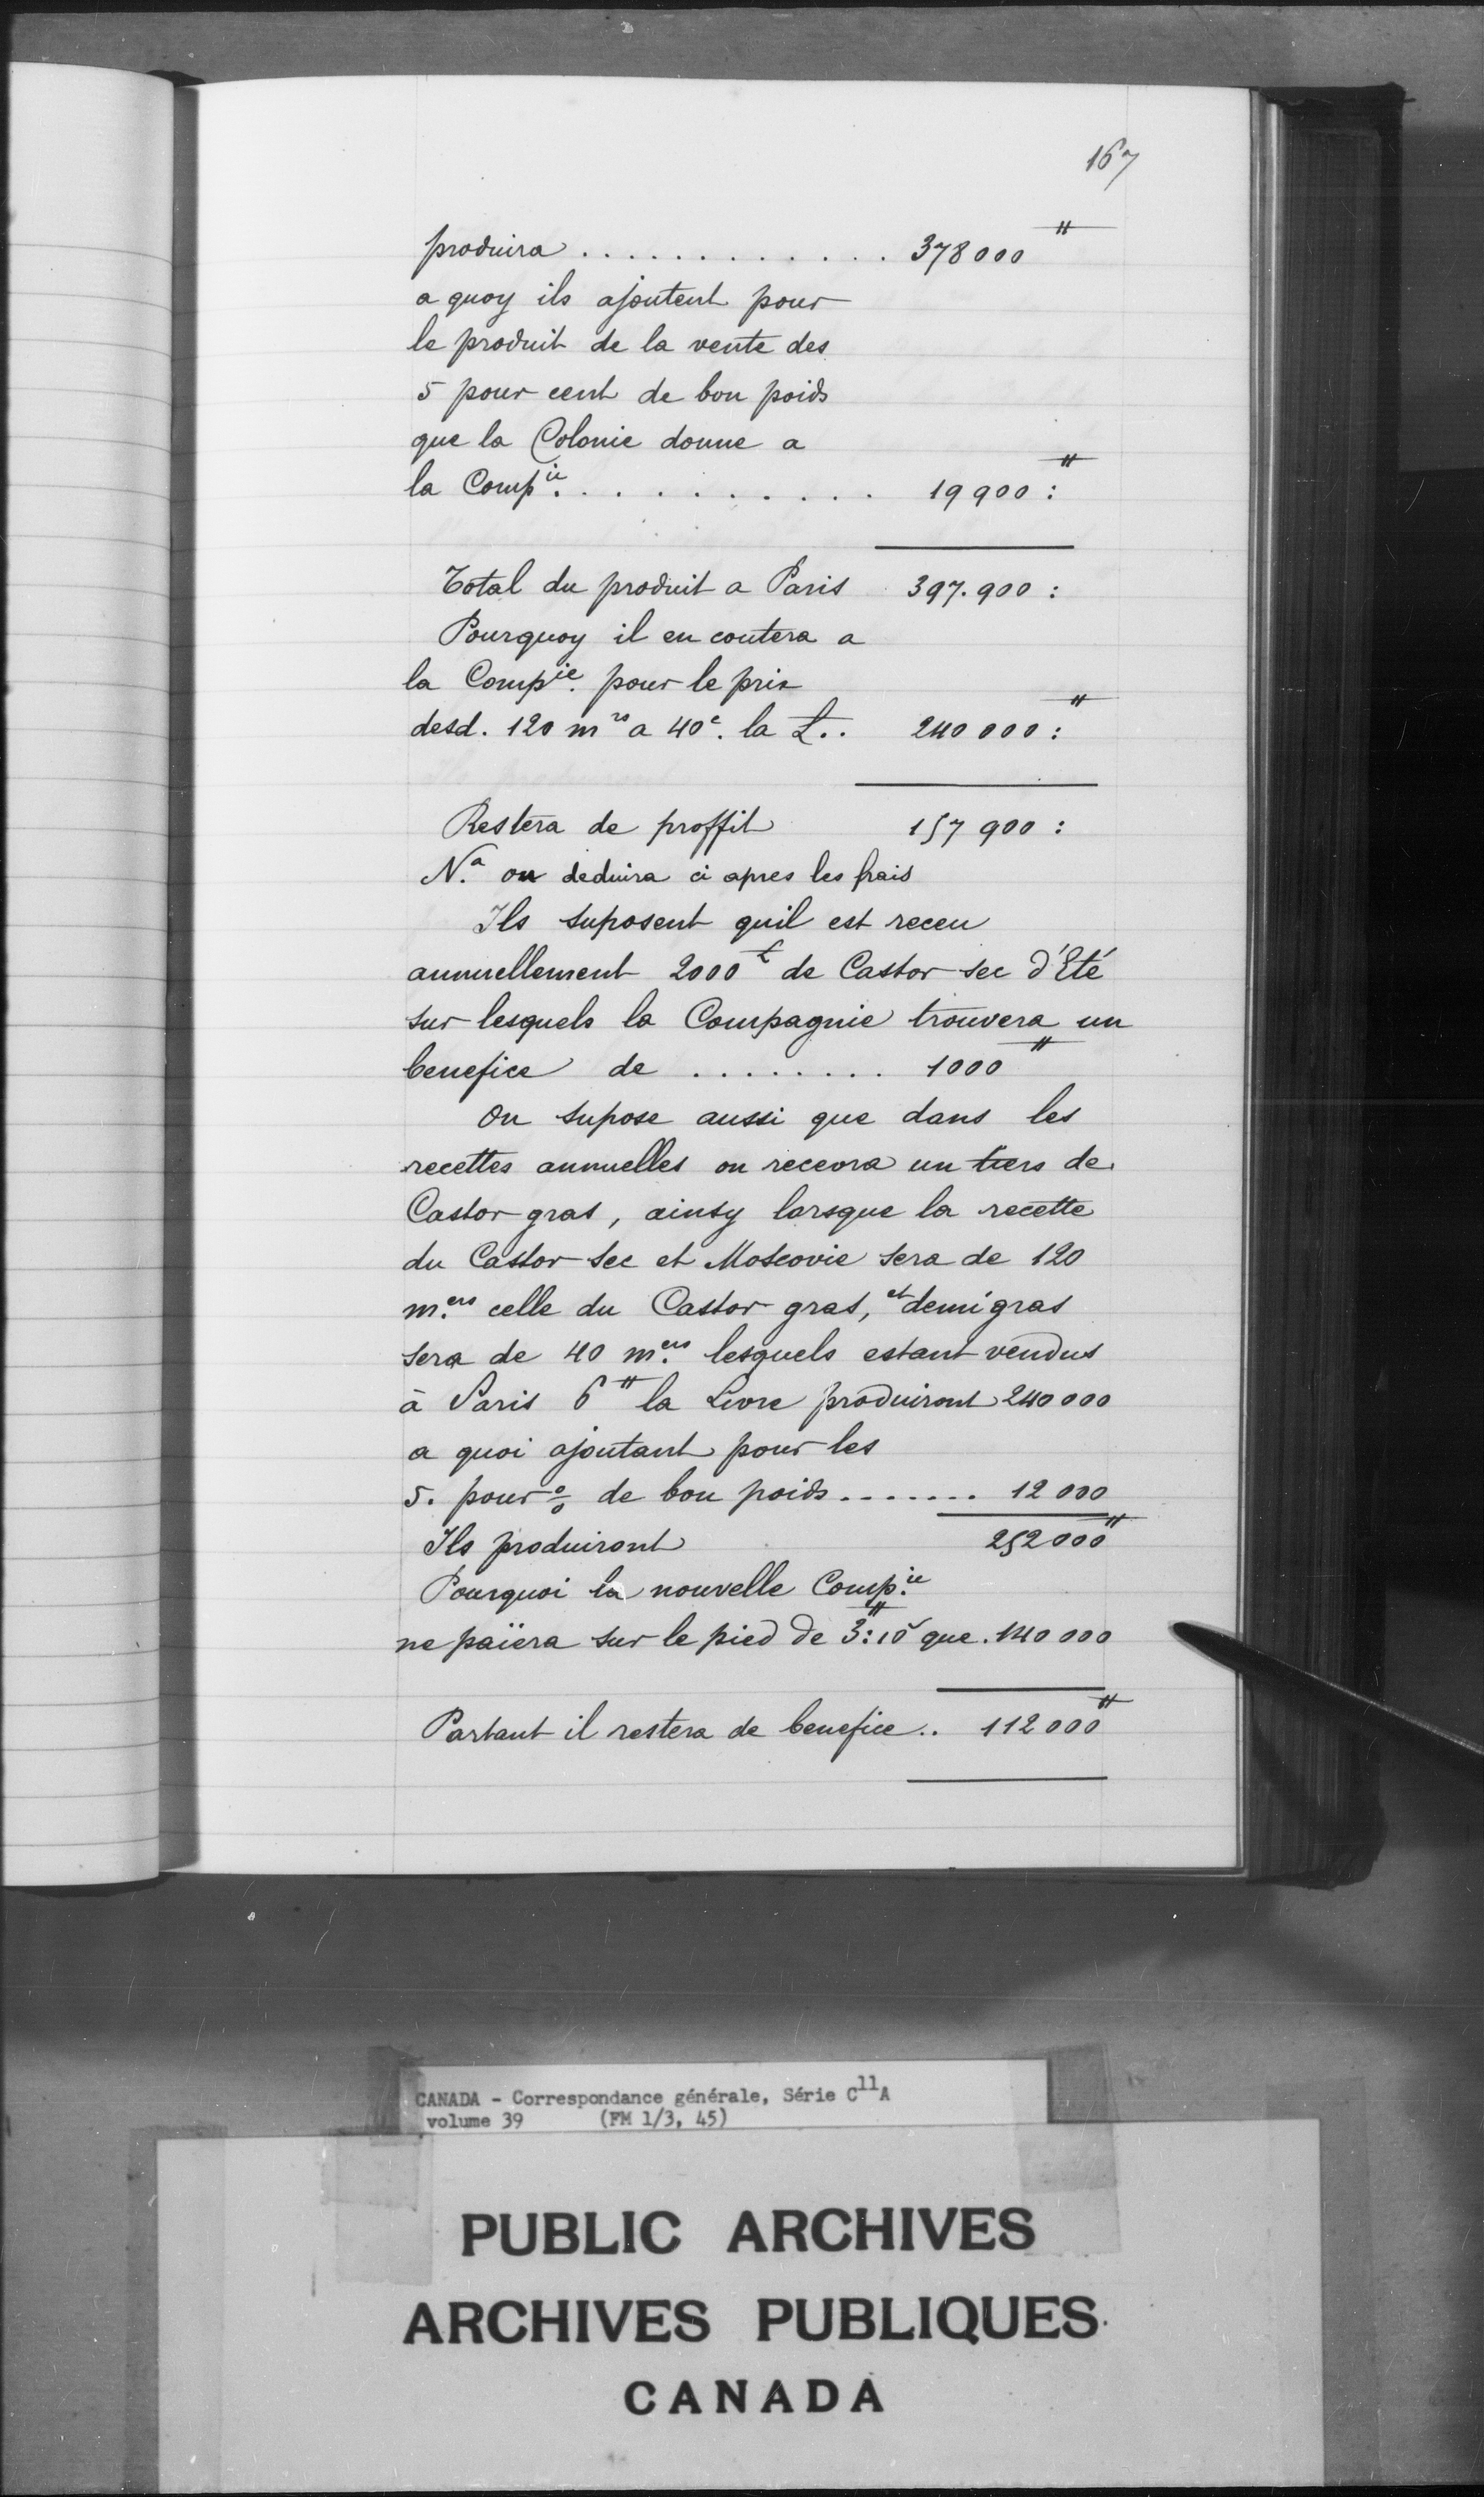 167
produira . . . . . . . . . . . 378000 ₶
a quoy ils ajoutent pour
le produit de la vente des
5 pour cent de bon poids
que la Colonie donne a
la Comp.ie . . . . . . . . . . 19900 : ₶
Total du produit a Paris 397.900 :
Pourquoy il en coutera a
la Comp.ie pour le prix
desd. 120 m.rs a 40.s la ℔ . . 240000 : ₶
Restera de proffit 157 900 :
N.a on deduira ci apres les frais
Ils suposent quil est receu
annuellement 2000 ℔ de Castor sec d'Eté
sur lesquels la Compagnie trouvera un
benefice de . . . . . . . . 1000 ₶
On supose aussi que dans les
recettes annuelles on recevra un tiers de
Castor gras, ainsy lorsque la recette
du Castor sec et Moscovie sera de 120
m.ers celle du Castor gras, et demi gras
sera de 40 m.ers lesquels estant vendus
à Paris 6 ₶ la Livre produiront 240000
a quoi ajoutant pour les
5. pour % de bon poids . . . . . . . 12000
Ils produiront 252000 ₶
Pourquoi la nouvelle Comp.ie
ne païera sur le pied de 3 ₶ : 10 s que . 140000
Partant il restera de benefice . . 112000 ₶
CANADA - Correspondance générale, Série C11A
volume 39 (FM 1/3, 45)
PUBLIC ARCHIVES
ARCHIVES PUBLIQUES
CANADA